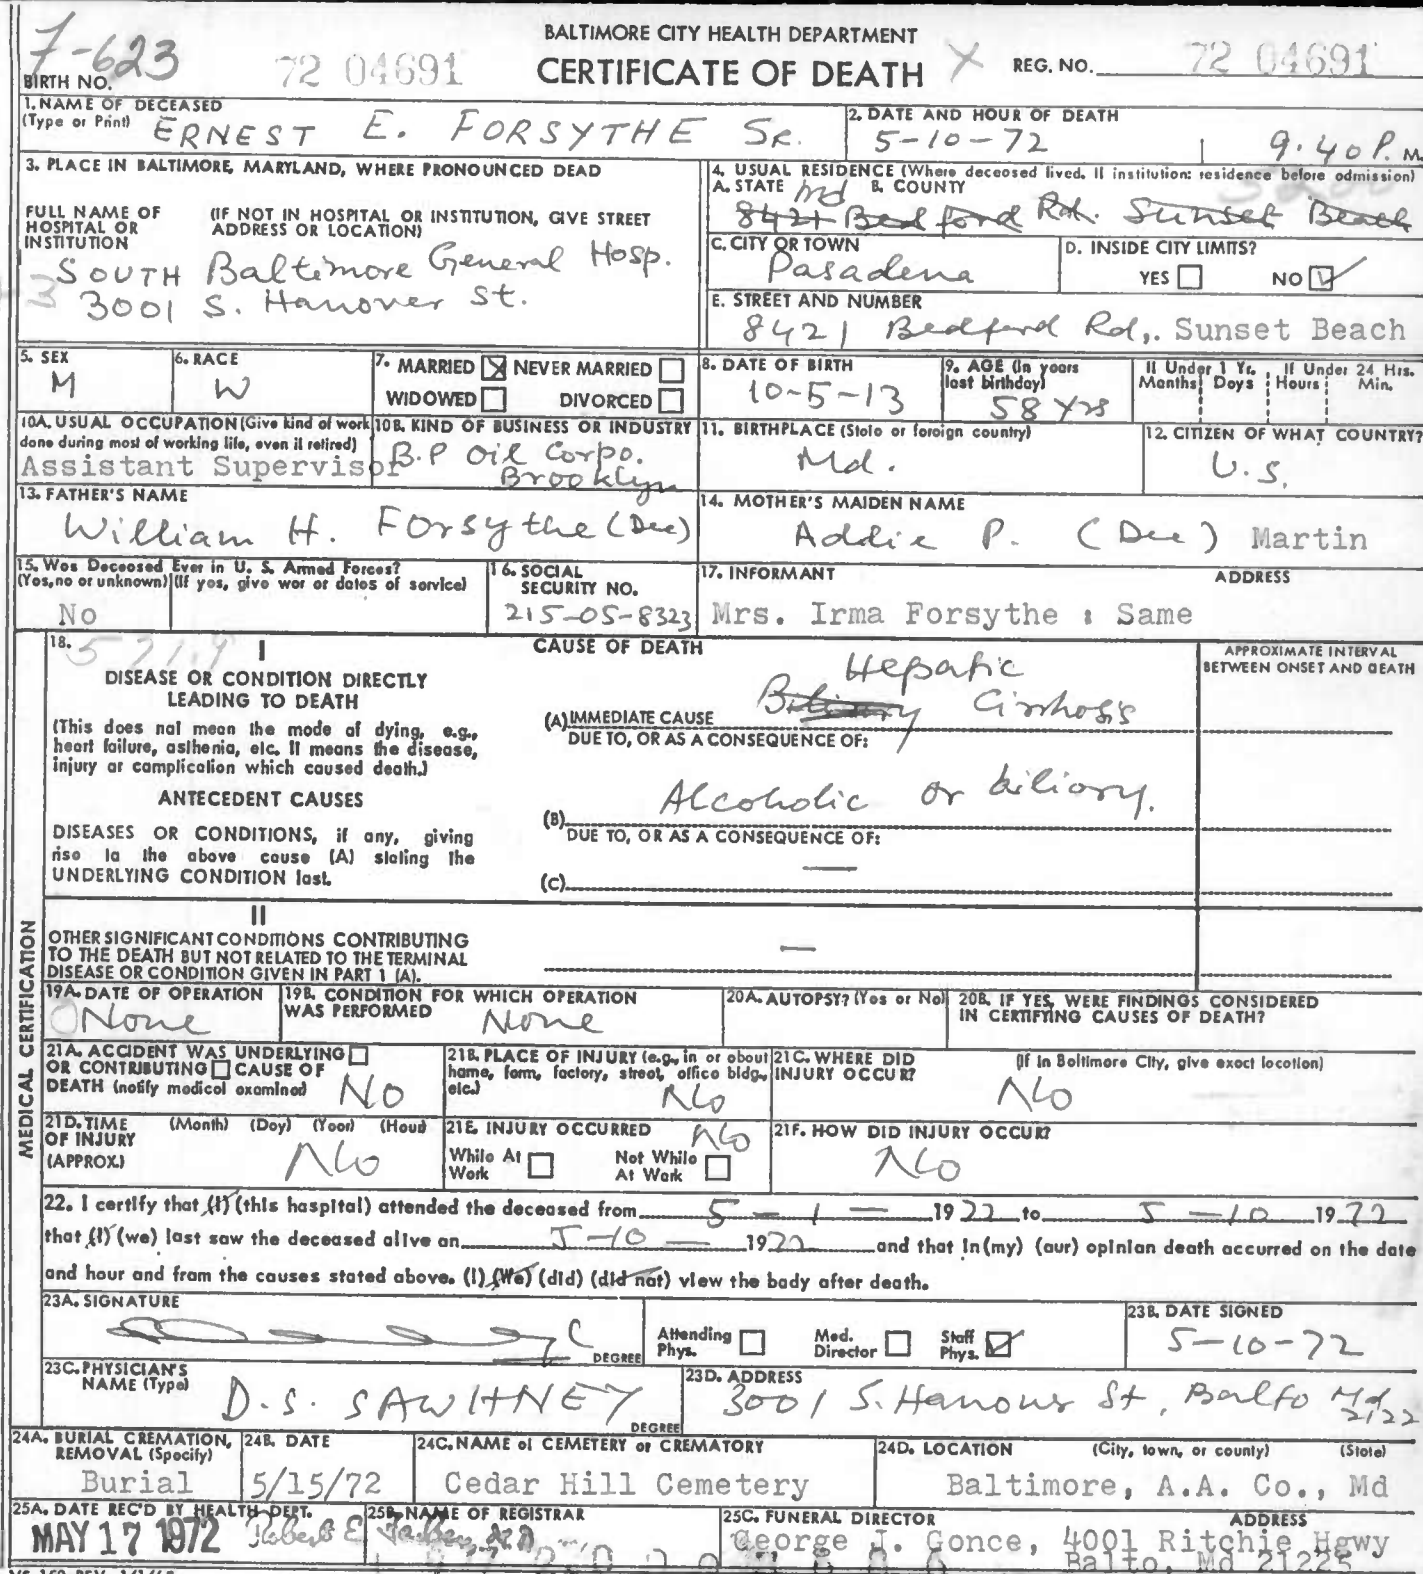 7-623
BALTIMORE CITY HEALTH DEPARTMENT
BIRTH NO. 72 04691 CERTIFICATE OF DEATH X REG. NO. 72 04691
1. NAME OF DECEASED
(Type or Print) ERNEST E. FORSYTHE Sr.
2. DATE AND HOUR OF DEATH
5-10-72 9.40 P. M.
3. PLACE IN BALTIMORE, MARYLAND, WHERE PRONOUNCED DEAD
FULL NAME OF HOSPITAL OR INSTITUTION
(IF NOT IN HOSPITAL OR INSTITUTION, GIVE STREET ADDRESS OR LOCATION)
SOUTH Baltimore General Hosp.
3001 S. Hanover St.
4. USUAL RESIDENCE (Where deceased lived. If institution: residence before admission)
A. STATE Md B. COUNTY
8421 Bedford Rd. Sunset Beach
C. CITY OR TOWN
Pasadena
D. INSIDE CITY LIMITS?
YES NO
E. STREET AND NUMBER
8421 Bedford Rd,. Sunset Beach
5. SEX
M
6. RACE
W
7. MARRIED NEVER MARRIED
WIDOWED DIVORCED
8. DATE OF BIRTH
10-5-13
9. AGE (In years last birthday)
58 Yrs
If Under 1 Yr. Months Days
If Under 24 Hrs. Hours Min.
10A. USUAL OCCUPATION (Give kind of work done during most of working life, even if retired)
Assistant Supervisor
10B. KIND OF BUSINESS OR INDUSTRY
B.P Oil Corpo.
Brooklyn
11. BIRTHPLACE (State or foreign country)
Md.
12. CITIZEN OF WHAT COUNTRY?
U.S.
13. FATHER'S NAME
William H. Forsythe (Dec)
14. MOTHER'S MAIDEN NAME
Addie P. (Dec) Martin
15. Was Deceased Ever in U. S. Armed Forces?
(Yes, no or unknown) (If yes, give war or dates of service)
No
16. SOCIAL SECURITY NO.
215-05-8323
17. INFORMANT ADDRESS
Mrs. Irma Forsythe : Same
MEDICAL CERTIFICATION
18. 571.9
I
DISEASE OR CONDITION DIRECTLY
LEADING TO DEATH
(This does not mean the mode of dying, e.g.,
heart failure, asthenia, etc. It means the disease,
injury or complication which caused death.)
ANTECEDENT CAUSES
DISEASES OR CONDITIONS, if any, giving
rise to the above cause (A) stating the
UNDERLYING CONDITION last.
CAUSE OF DEATH
APPROXIMATE INTERVAL
BETWEEN ONSET AND DEATH
Hepatic
(A) IMMEDIATE CAUSE Biliary Cirrhosis
DUE TO, OR AS A CONSEQUENCE OF:
(B) Alcoholic or biliary.
DUE TO, OR AS A CONSEQUENCE OF:
(C) —
II
OTHER SIGNIFICANT CONDITIONS CONTRIBUTING
TO THE DEATH BUT NOT RELATED TO THE TERMINAL
DISEASE OR CONDITION GIVEN IN PART 1 (A).
—
19A. DATE OF OPERATION
None
19B. CONDITION FOR WHICH OPERATION WAS PERFORMED
None
20A. AUTOPSY? (Yes or No)
20B. IF YES, WERE FINDINGS CONSIDERED IN CERTIFYING CAUSES OF DEATH?
21A. ACCIDENT WAS UNDERLYING
OR CONTRIBUTING CAUSE OF
DEATH (notify medical examiner) NO
21B. PLACE OF INJURY (e.g., in or about home, farm, factory, street, office bldg., etc.)
No
21C. WHERE DID INJURY OCCUR?
(If in Baltimore City, give exact location)
No
21D. TIME OF INJURY (APPROX.)
(Month) (Day) (Year) (Hour)
No
21E. INJURY OCCURRED No
While At Work Not While At Work
21F. HOW DID INJURY OCCUR?
No
22. I certify that (I) (this hospital) attended the deceased from 5 - 1 - 1972 to 5 - 10 1972
that (I) (we) last saw the deceased alive on 5-10 - 1972 and that in (my) (our) opinion death occurred on the date
and hour and from the causes stated above. (I) (We) (did) (did not) view the body after death.
23A. SIGNATURE
DEGREE
Attending Phys. Med. Director Staff Phys.
23B. DATE SIGNED
5-10-72
23C. PHYSICIAN'S NAME (Type)
D.S. SAWHNEY
DEGREE
23D. ADDRESS
3001 S. Hanover St, Balto Md
24A. BURIAL CREMATION, REMOVAL (Specify)
Burial
24B. DATE
5/15/72
24C. NAME of CEMETERY or CREMATORY
Cedar Hill Cemetery
24D. LOCATION (City, town, or county) (State)
Baltimore, A.A. Co., Md
25A. DATE REC'D BY HEALTH DEPT.
MAY 17 1972
25B. NAME OF REGISTRAR
Robert E. Farber, M.D.
25C. FUNERAL DIRECTOR ADDRESS
George J. Gonce, 4001 Ritchie Hgwy
Balto, Md 21225